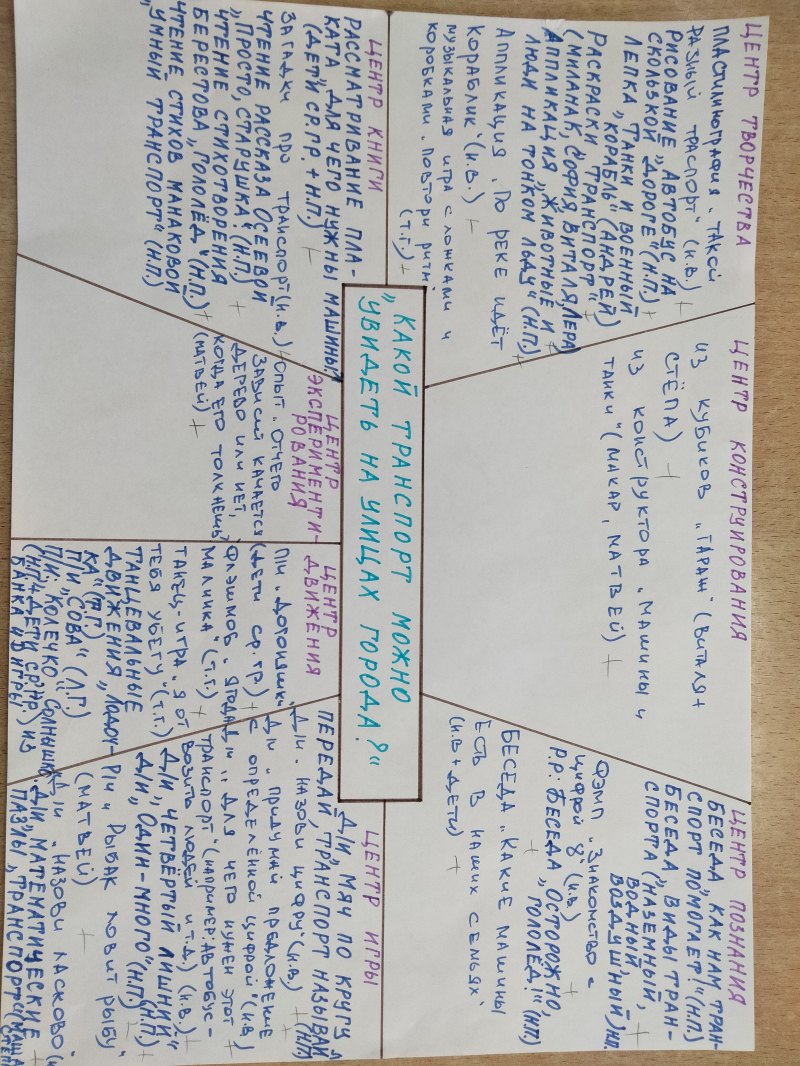 ЦЕНТР ТВОРЧЕСТВА
ПЛАСТИЛИНОГРАФИЯ „ТАКОЙ
РАЗНЫЙ ТРАСПОРТ" (И.В.) +
РИСОВАНИЕ „АВТОБУС НА
СКОЛЬЗКОЙ ДОРОГЕ" (Н.П.) +
ЛЕПКА „ТАНКИ И ВОЕННЫЙ
КОРАБЛЬ" (АНДРЕЙ) +
РАСКРАСКИ „ТРАНСПОРТ"
(МИЛАНА К, СОФИЯ, ВИТАЛЯ, ЛЕРА)
АППЛИКАЦИЯ „ЖИВОТНЫЕ И +
ЛЮДИ НА ТОНКОМ ЛЬДУ" (Н.П.) +
АППЛИКАЦИЯ „ПО РЕКЕ ИДЁТ
КОРАБЛИК" (И.В.) +
МУЗЫКАЛЬНАЯ ИГРА С ЛОЖКАМИ И
КОРОБКАМИ „ПОВТОРИ РИТМ"
(Т.Г.) +
ЦЕНТР КОНСТРУИРОВАНИЯ
ИЗ КУБИКОВ „ГАРАЖ" (ВИТАЛЯ +
СТЁПА) +
ИЗ КОНСТРУКТОРА „МАШИНЫ И
ТАНКИ" (МАКАР, МАТВЕЙ) +
ЦЕНТР ПОЗНАНИЯ
БЕСЕДА „КАК НАМ ТРАН-
СПОРТ ПОМОГАЕТ" (Н.П.)
БЕСЕДА „ВИДЫ ТРАН- +
СПОРТА (НАЗЕМНЫЙ,
ВОДНЫЙ, +
ВОЗДУШНЫЙ) Н.П.
ФЭМП „ЗНАКОМСТВО С
ЦИФРОЙ 8" (И.В.) +
Р.Р: БЕСЕДА „ОСТОРОЖНО,
+ ГОЛОЛЁД!" (Н.П.)
БЕСЕДА „КАКИЕ МАШИНЫ
ЕСТЬ В НАШИХ СЕМЬЯХ"
(И.В + ДЕТИ) +
„КАКОЙ ТРАНСПОРТ МОЖНО
УВИДЕТЬ НА УЛИЦАХ ГОРОДА?"
ЦЕНТР КНИГИ
РАССМАТРИВАНИЕ ПЛА-
КАТА „ДЛЯ ЧЕГО НУЖНЫ МАШИНЫ"
(ДЕТИ СР.ГР. + Н.П.) +
ЗАГАДКИ ПРО ТРАНСПОРТ (И.В.) +
ЧТЕНИЕ РАССКАЗА ОСЕЕВОЙ
„ПРОСТО, СТАРУШКА" (Н.П) +
ЧТЕНИЕ СТИХОТВОРЕНИЯ
БЕРЕСТОВА „ГОЛОЛЁД" (Н.П.) +
ЧТЕНИЕ СТИХОВ МАНАКОВОЙ
„УМНЫЙ ТРАНСПОРТ" (Н.П.)
ЦЕНТР
ЭКСПЕРИМЕНТИ-
РОВАНИЯ
ОПЫТ „ОТЧЕГО
ЗАВИСИТ КАЧАЕТСЯ
ДЕРЕВО ИЛИ НЕТ,
КОГДА ЕГО ТОЛКНЕШЬ"
(МАТВЕЙ) +
ЦЕНТР
ДВИЖЕНИЯ
П/И „ДОГОНЯШКИ"
(ДЕТИ СР. ГР.) +
ФЛЭШМОБ „ЯГОДА
МАЛИНКА" (Т.Г.) +
ТАНЕЦ-ИГРА „Я ОТ
ТЕБЯ УБЕГУ" (Т.Г.)
ТАНЦЕВАЛЬНЫЕ
ДВИЖЕНИЯ „ЛОДОЧ-
КА" (Т.Г.)
П/И „СОВА" (Л.Г.)
П/И „КОЛЕЧКО", „СОЛНЫШКО"
(Н.П + ДЕТИ СР.ГР) ИЗ
БАНКА „ИГРЫ"
ЦЕНТР ИГРЫ
Д/И „МЯЧ ПО КРУГУ
ПЕРЕДАЙ, ТРАНСПОРТ НАЗЫВАЙ"
Д/И „НАЗОВИ ЦИФРУ" (И.В.) + (Н.П)
Д/И „ПРИДУМАЙ ПРЕДЛОЖЕНИЕ
С ОПРЕДЕЛЁННОЙ ЦИФРОЙ" (И.В.)
Д/И „ДЛЯ ЧЕГО НУЖЕН ЭТОТ +
ТРАНСПОРТ" (НАПРИМЕР: АВТОБУС -
ВОЗИТЬ ЛЮДЕЙ И Т.Д.) (И.В.) +
Д/И „ЧЕТВЁРТЫЙ ЛИШНИЙ" (Н.П.)
Д/И „ОДИН - МНОГО" (Н.П.) +
Р/И „РЫБАК ЛОВИТ РЫБУ" +
(МАТВЕЙ) +
Д/И „НАЗОВИ ЛАСКОВО"
Д/И „МАТЕМАТИЧЕСКИЕ
ПАЗЛЫ", „ТРАНСПОРТ" (МАША
СТЕПА